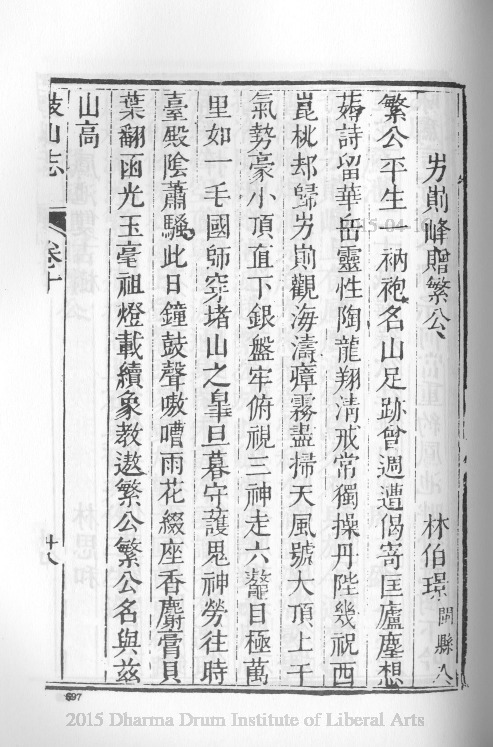 屴崱峰贈繁公 林伯璟 閩縣人
繁公平生一衲袍名山足跡曾週遭偈寄匡廬塵想
薅詩留華岳靈性陶龍翔清戒常獨操丹陛幾祝西
崑桃却歸屴崱觀海濤瘴霧盡掃天風號大頂上干
氣勢豪小頂直下銀盤牢俯視三神走六鼇目極萬
里如一毛國師窣堵山之皐旦暮守護鬼神勞往時
臺殿陰蕭騷此日鐘鼓聲嗷嘈雨花綴座香麝膏貝
葉翻函光玉毫祖燈載續象教遨繁公繁公名與茲
山高
鼓山志 卷十 廿八
697
2015 Dharma Drum Institute of Liberal Arts